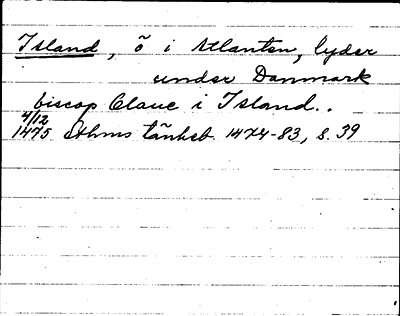 Island, ö i Atlanten, lyder
under Danmark
biscop Claue i Island..
4/12
1475 Sthms tänkeb. 1474-83, s. 39